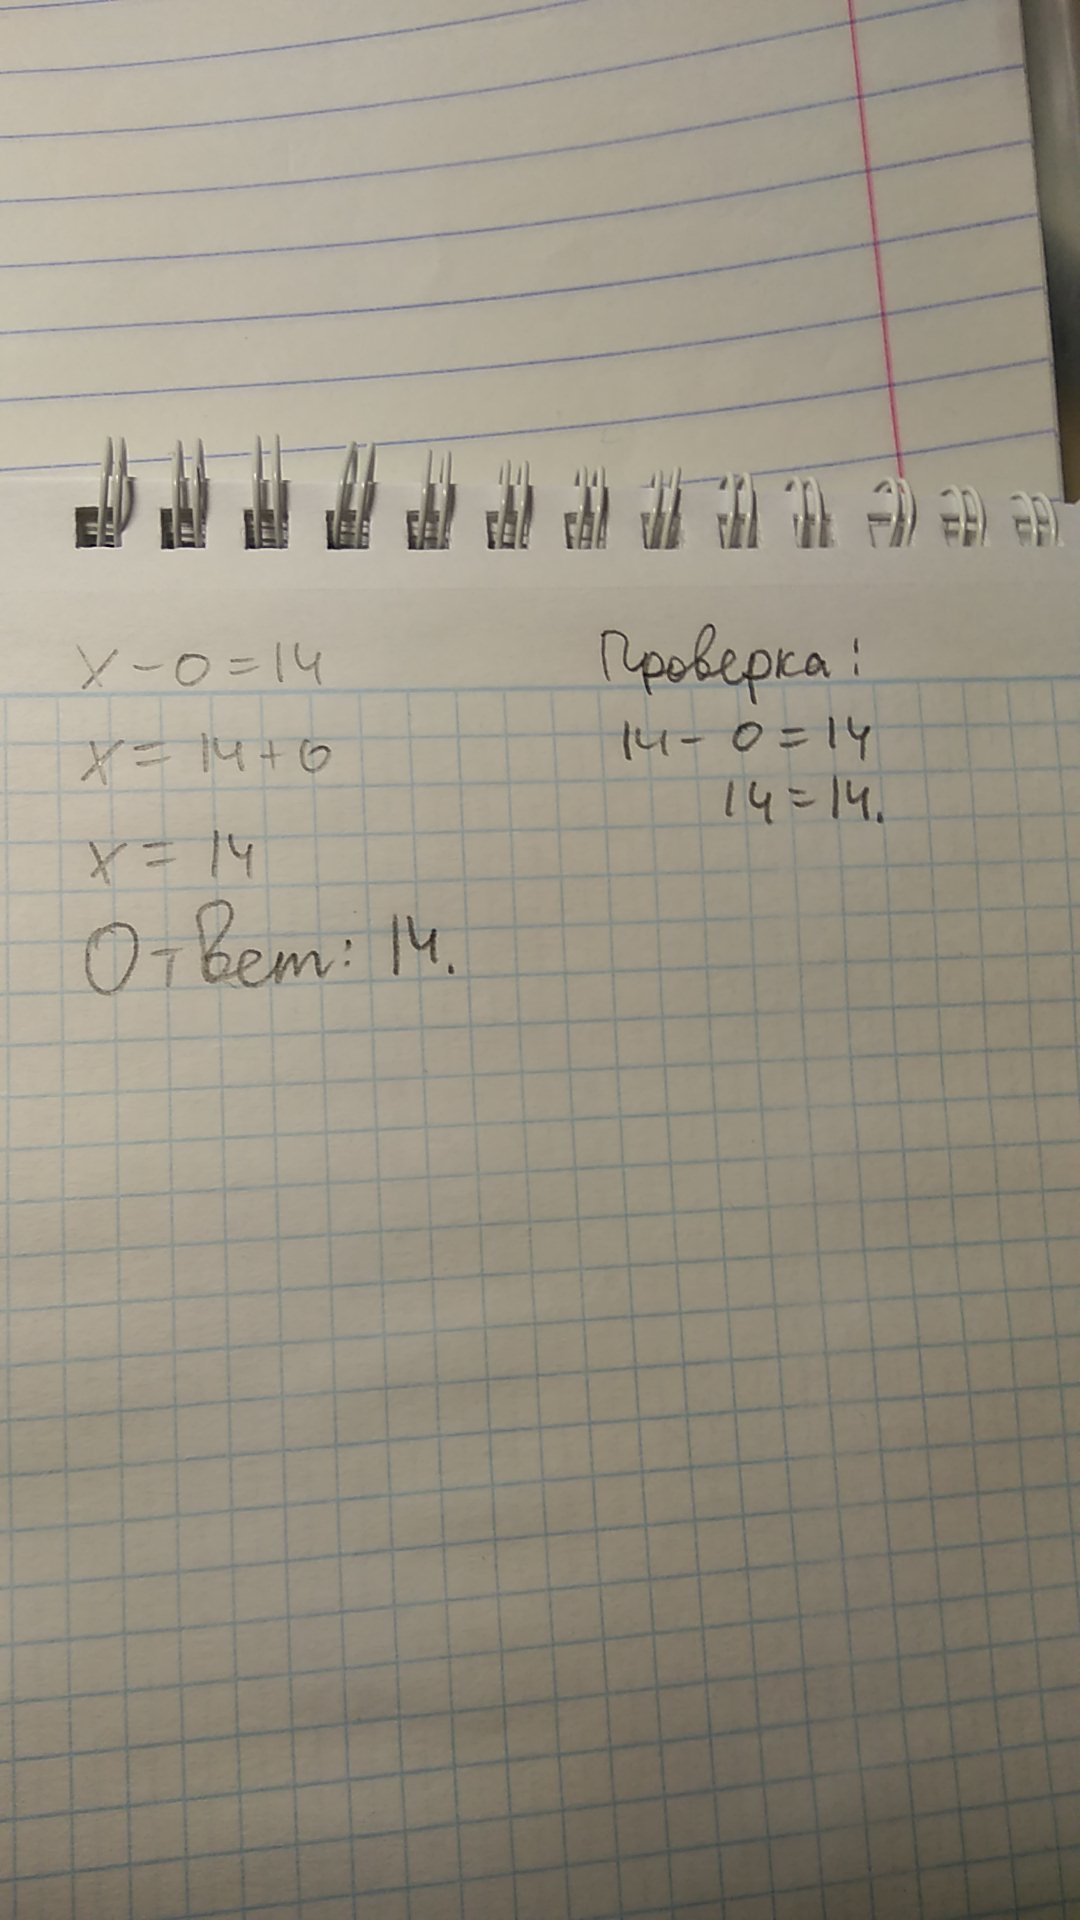 x - 0 = 14
x = 14 + 0
x = 14
Ответ: 14.
Проверка:
14 - 0 = 14
14 = 14.